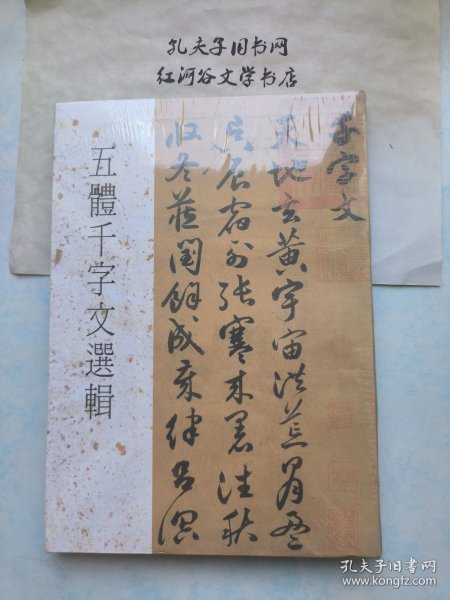 孔夫子旧书网
红河谷文学书店
五體千字文選輯
千字文
天地玄黄宇宙洪荒日月盈
昃辰宿列張寒來暑往秋
收冬藏閏餘成歲律吕調
孔夫子旧书网
www.kongfz.com